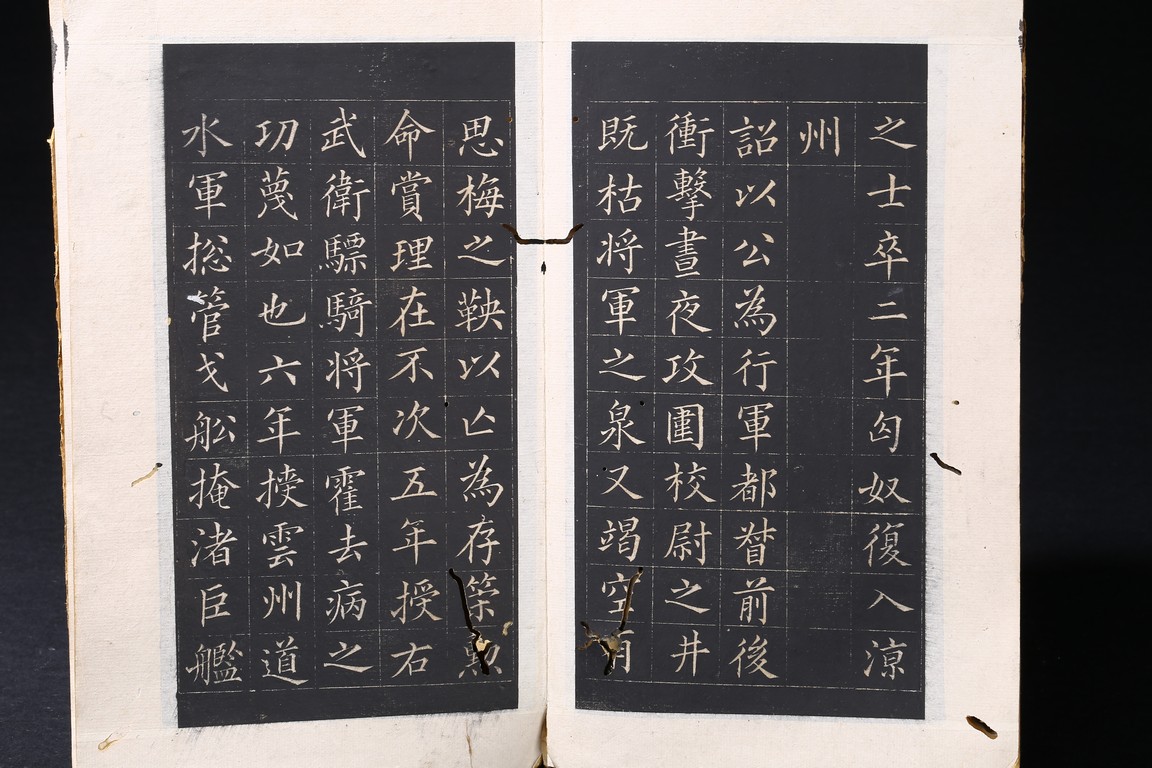 之士卒二年匈奴復入涼
州
詔以公為行軍都督前後
衝擊晝夜攻圍校尉之井
既枯将軍之泉又竭空有
思梅之鞅以亡為存築勲
命賞理在不次五年授右
武衛驃騎将軍霍去病之
功蔑如也六年㨽雲州道
水軍揔管戈舩掩渚巨艦